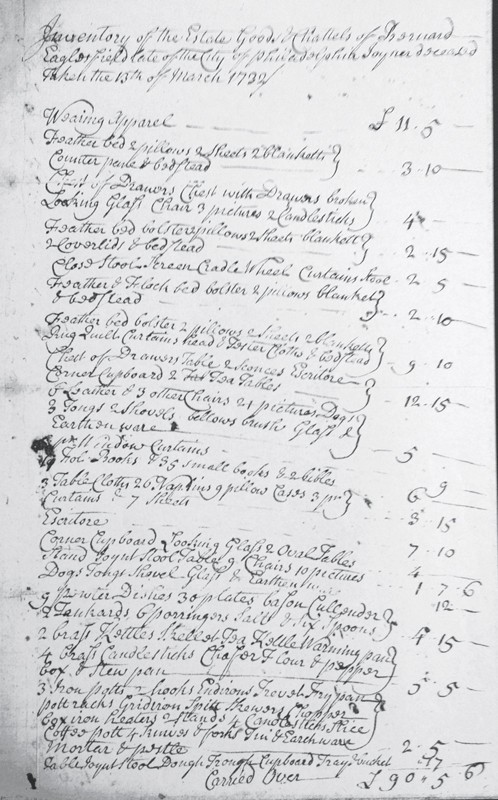 Inventory of the Estate Goods & Chattels of Bernard
Eaglesfield late of the City of Philadelphia Joyner deceased
Taken the 13th of March 1722/
Wearing Apparel £ 11 . 5
Feather bed 2 pillows 2 Sheets 2 blanketts
Counter pane & bedstead 3 . 10
Chest of Drawers Chest with Drawers broken
Looking Glass Chair 3 pictures 2 Candlesticks 4
Feather bed bolster 2 pillows 2 Sheets blankett
2 Coverlids & bedstead 2 . 15
Close Stool Screen Cradle Wheel Curtains 2 . 5
Feather & Flock bed bolster 2 pillows blankett
& bedstead 2 . 10
Feather bed bolster 2 pillows 2 Sheets 2 blanketts
Quilt Curtains head & Tester Cloths & bedstead 9 . 10
Chest of Drawers Table 2 Sconces Escritore
Corner Cupboard 2 Tea Tables
Leather & 3 other Chairs 21 pictures Dogs 12 . 15
3 Tongs 2 Shovels bellows brush Glass &
Earthenware 5
Window Curtains
Books & 35 small books & 2 bibles 9
3 Table Cloths 26 Napkins 9 pillow Cases 3 pr
Curtains & 7 Sheets 6
Escritore 3 . 15
Corner Cupboard Looking Glass 2 Oval Tables 7 . 10
Stand Joynt Stool Table 9 Chairs 10 pictures 4
Dogs Tongs Shovel Glass & Earthen 1 . 7 . 6
9 pewter Dishes 30 plates bason Cullender 12
2 Tankards 6 porringers Salt & Six Spoons
2 brass Kettles Skellet Tea Kettle Warming pan 4 . 15
4 brass Candlesticks Chafer Flour & pepper
box & Stew pan 5 . 5
3 Iron potts 2 hooks Endirons Trevet Fry pan
pott racks Gridiron Spitt Skewers Chopper
box iron heaters 2 Stands 4 Candlesticks
Coffee pott 4 Knives & forks Tin & Earthware
Mortar & pestle 2 . 5
Table Joynt Stool Dough Trough Cupboard Tray & bucket 17
Carried Over £ 90 . 5 . 6